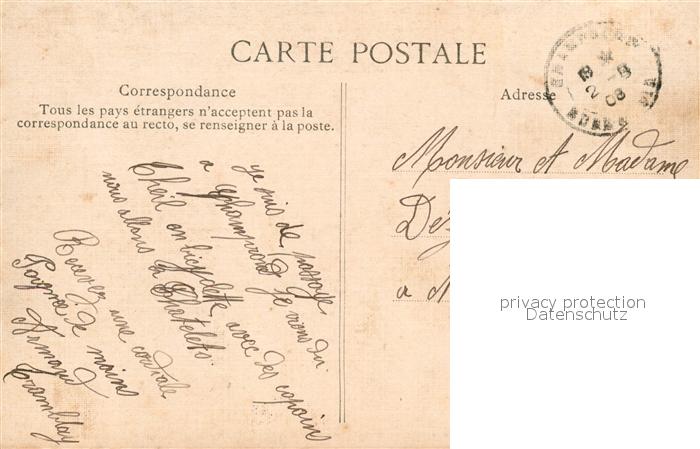 CARTE POSTALE
Correspondance
Tous les pays étrangers n'acceptent pas la
correspondance au recto, se renseigner à la poste.
Adresse
Monsieur et Madame
Dé
a
privacy protection
Datenschutz
je suis de passage
a Champrond je viens du
Theil en bicyclette avec des copains
nous allons a Chatelets.
Recevez une cordiale
Poignée de mains
Armand
Tremblay